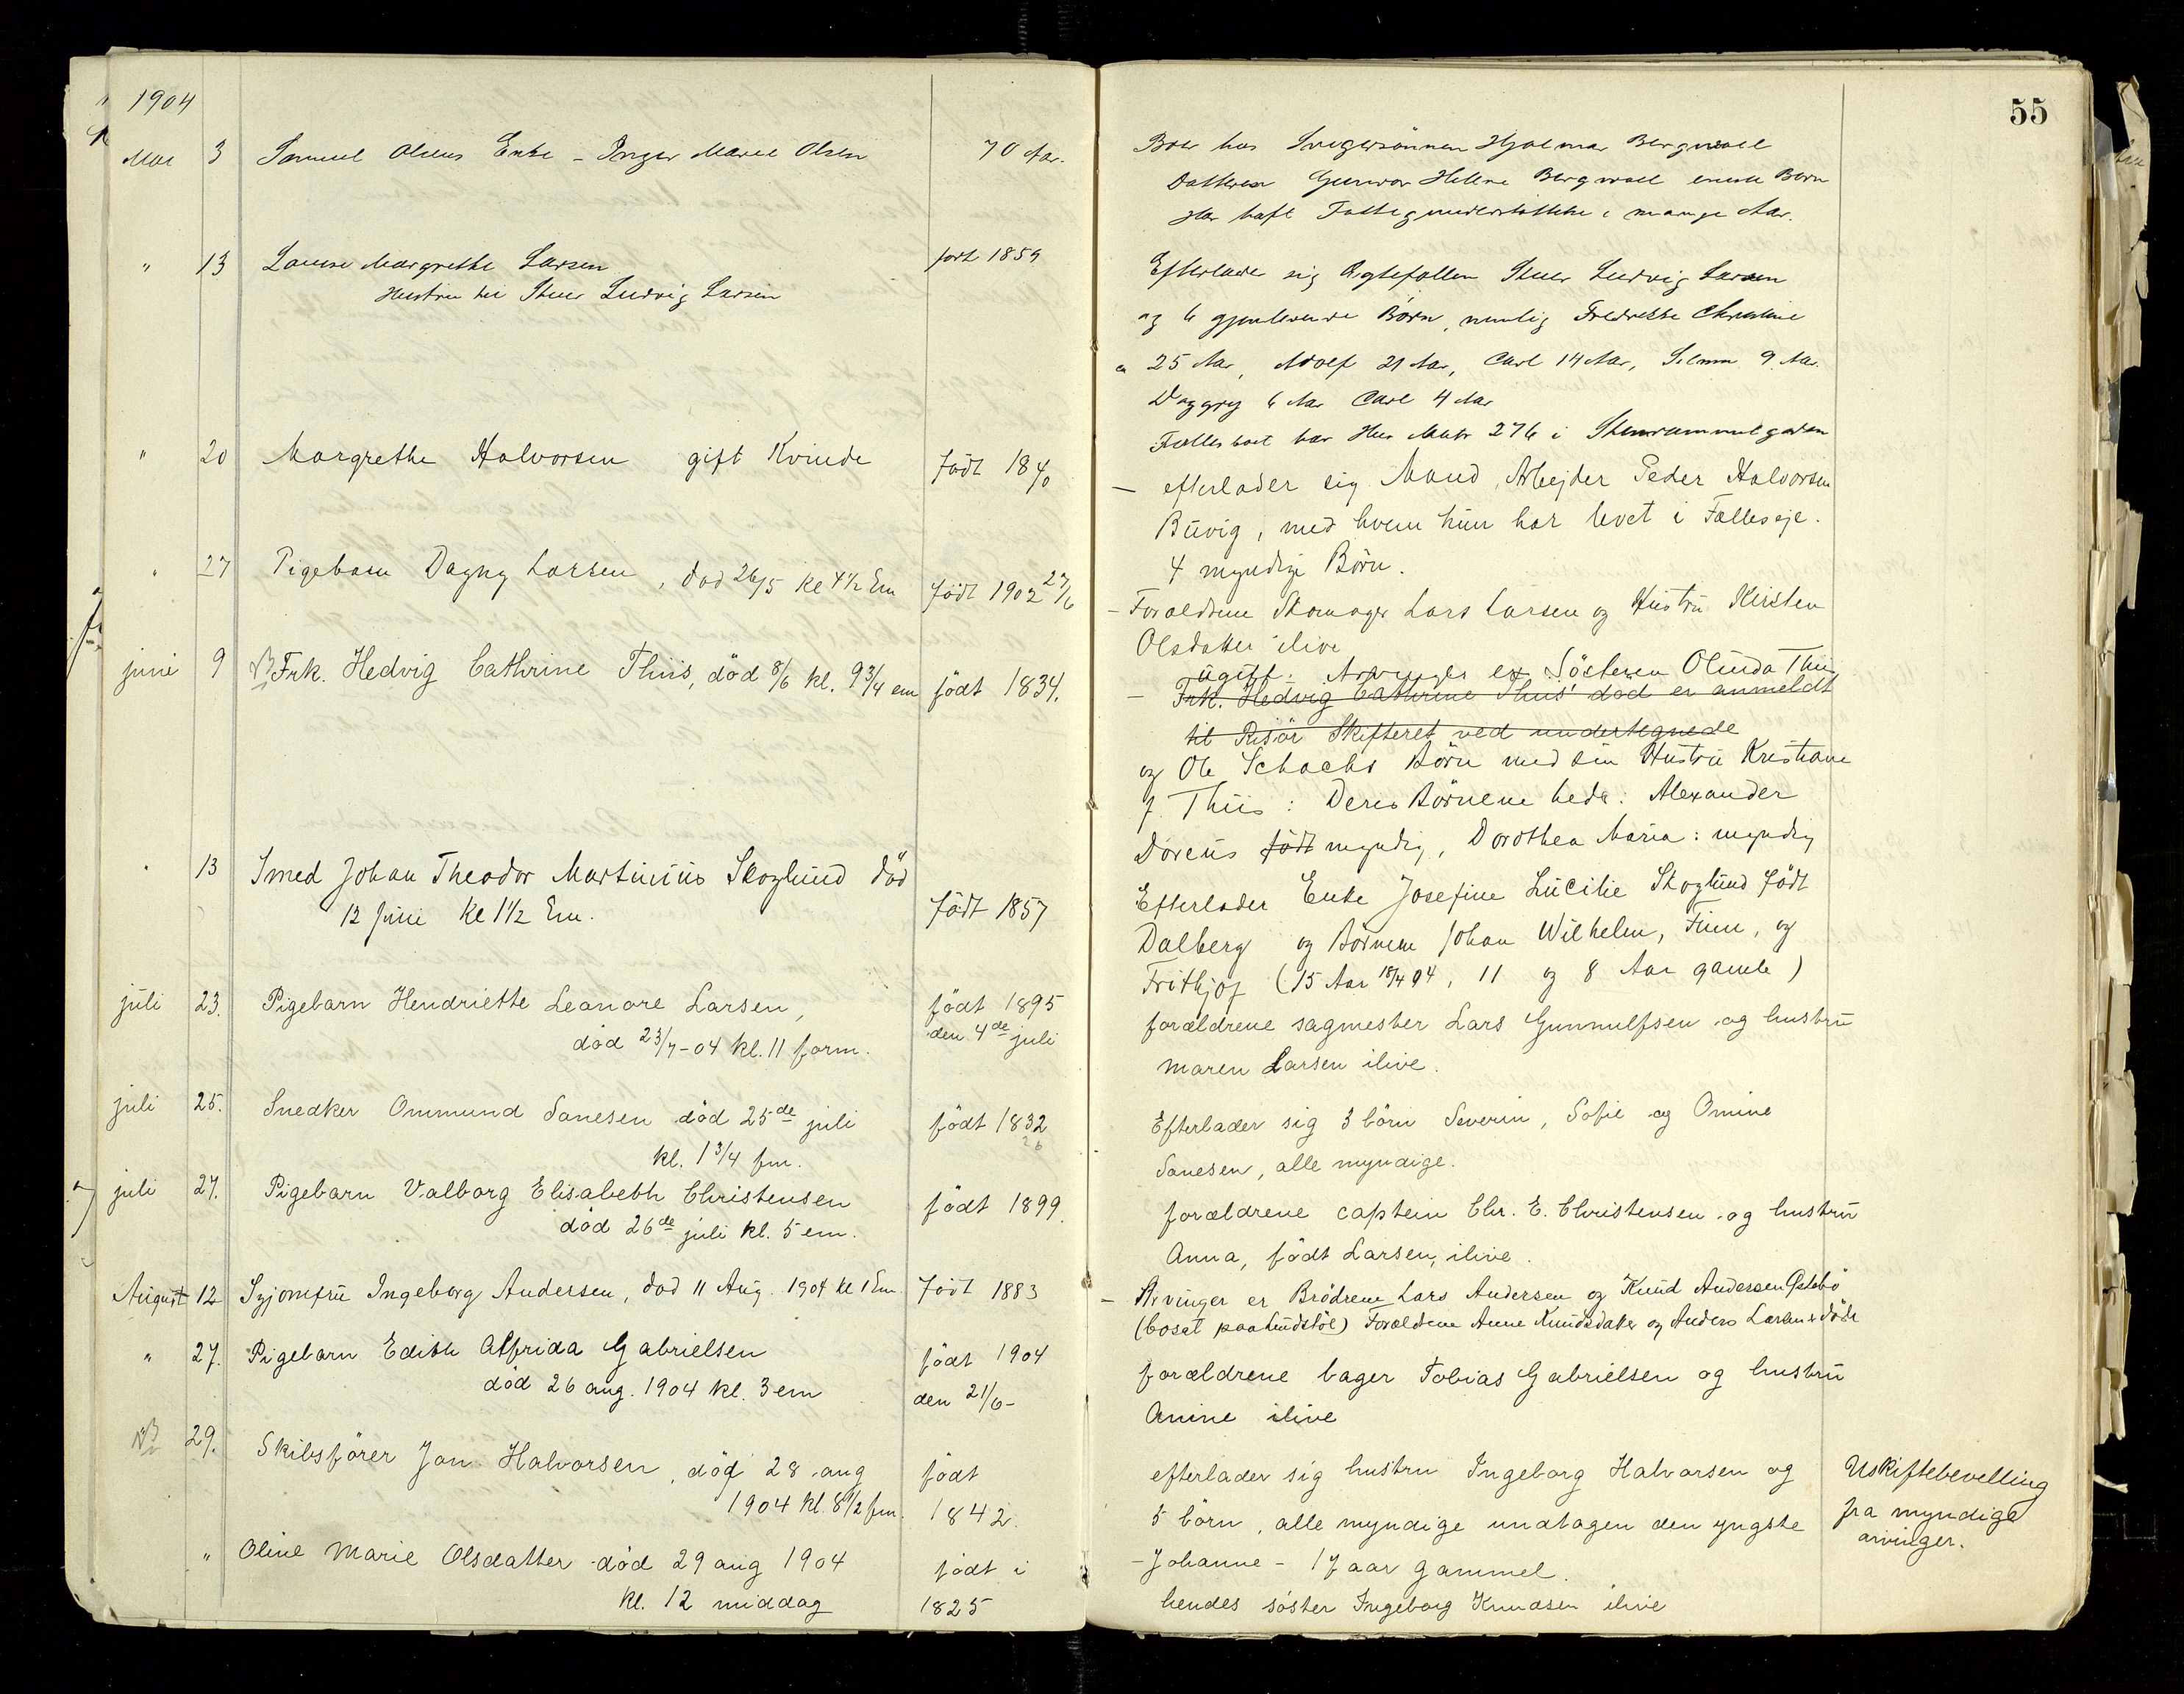 55
1904
Mai 3 Samuel Olsens Enke - Inger Marie Olsen 70 Aar.
Bor hos Svigersönnen Hjalmar Bergwall
Datteren Gunvor Helene Bergwall eneste Barn
Har havt Fattigunderstöttelse i mange Aar.
" 13 Louise Margrethe Larsen født 1859
Hustru til Stuer Ludvig Larsen
Efterlader sig Ægtefællen Stuer Ludvig Larsen
og 6 gjenlevende Börn, nemlig Fredrikke Christine
25 Aar, Adolf 21 Aar, Carl 14 Aar, 9 Aar.
Dagny 6 Aar Carl 4 Aar
Fællesboet har Hus Matr 276 i
" 20 Margrethe Halvorsen gift Kvinde födt 1840
— efterlader sig Mand, Arbejder Peder Halvorsen
Buvig, med hvem hun har levet i Fælleseje.
4 myndige Börn.
" 27 Pigebarn Dagny Larsen, död 26/5 kl 4 1/2 Em födt 1902 27/6
- Forældrene Skomager Lars Larsen og Hustru Kirsten
Olsdatter ilive
juni 9 NB Frk. Hedvig Cathrine Thiis, död 8/6 kl. 9 3/4 em födt 1834.
ugift. Arvinger er Søsteren Olinda Thiis
- Frk. Hedvig Cathrine Thiis' död er anmeldt
til Risör Skifteret ved undertegnede
og Ole Schachs Börn med sin Hustru Kristiane
f. Thiis: Deres Börnene heder: Alexander
Doreus födt myndig, Dorothea Maria: myndig
" 13 Smed Johan Theodor Martinius Skoglund död
12 Juni kl 1 1/2 Em. födt 1857
Efterlader Enke Josefine Lucilie Skoglund födt
Dalberg og Börnene Johan Wilhelm, Finn, og
Frithjof (15 Aar 18/4 04, 11 og 8 Aar gamle)
juli 23. Pigebarn Hendriette Leanore Larsen, födt 1895
död 23/7-04 kl. 11 form. den 4de juli
forældrene sagmester Lars Gunnulfsen og hustru
Maren Larsen ilive.
juli 25. Snedker Ommund Sanesen död 25de juli födt 1832
kl. 1 3/4 fm. 26
Efterlader sig 3 börn Severin, Sofie og Omine
Sanesen, alle myndige.
juli 27. Pigebarn Valborg Elisabeth Christensen födt 1899.
död 26de juli kl. 5 em.
forældrene captein Chr. E. Christensen og hustru
Anna, födt Larsen, ilive.
August 12 Syjomfru Ingeborg Andersen, död 11 Aug. 1904 kl 1 Em. födt 1883
- Arvinger er Brödrene Lars Andersen og Knud Andersen
(bosat paa Lindstöl) Forældrene Anne Knudsdatter og Anders Larsen döde
" 27. Pigebarn Edith Alfrida Gabrielsen födt 1904
död 26 aug. 1904 kl. 3 em den 21/6-
forældrene bager Tobias Gabrielsen og hustru
Anine ilive
NB 29. Skibsförer Jan Halvorsen, död 28 aug födt
1904 kl. 8 1/2 fm. 1842.
efterlader sig hustru Ingeborg Halvorsen og
5 börn, alle myndige undtagen den yngste
- Johanne - 17 aar gammel.
Uskiftebevilling
fra myndige
arvinger.
" Oline Marie Olsdatter död 29 aug 1904 födt i
kl. 12 middag 1825
hendes söster Ingeborg Knudsen ilive